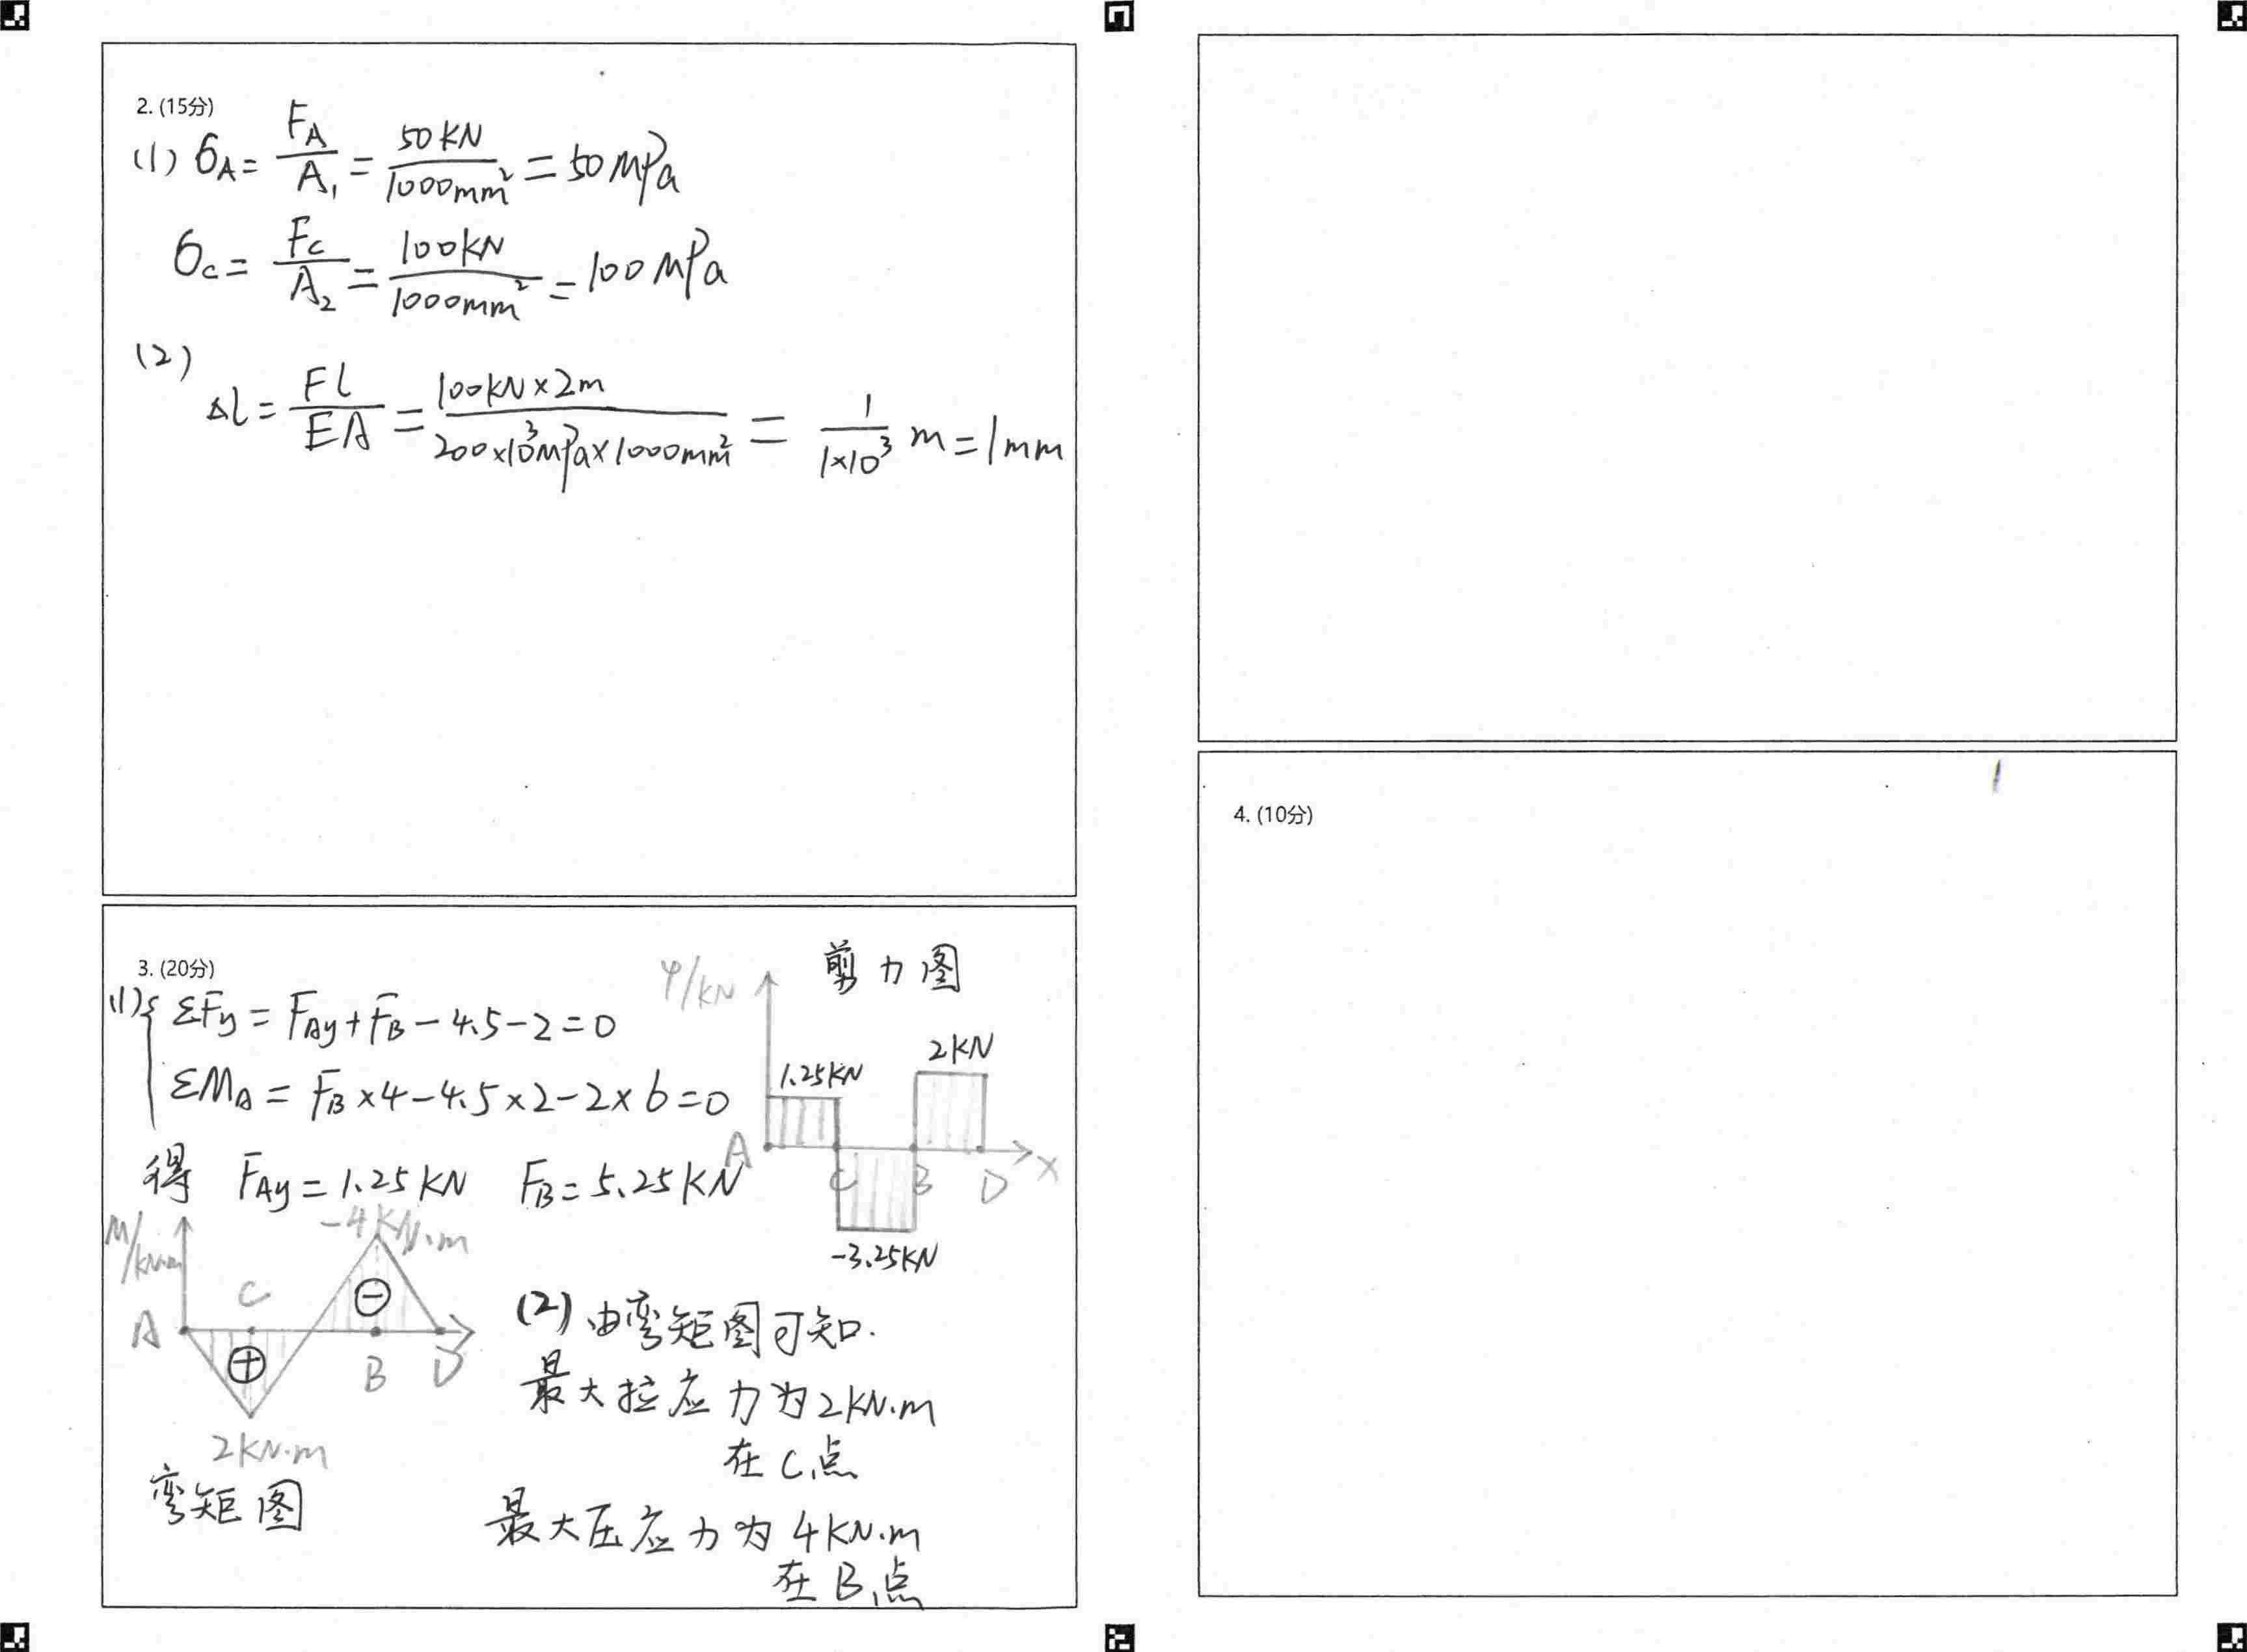 2. (15分)
(1) σA = FA/A₁ = 50KN/1000mm² = 50MPa
σc = Fc/A₂ = 100KN/1000mm² = 100MPa
(2)
Δl = Fl/EA = 100KN×2m/200×10³MPa×1000mm² = 1/1×10³ m = 1mm
3. (20分)
(1) { ΣFy = FAy + FB - 4.5 - 2 = 0
ΣMA = FB×4 - 4.5×2 - 2×6 = 0
得 FAy = 1.25KN FB = 5.25KN
剪力图
/KN
1.25KN
2KN
A
C
B
D
X
-3.25KN
M/KN.m
-4KN.m
C
A
⊖
⊕
B
D
2KN.m
弯矩图
(2) 由弯矩图可知.
最大拉应力为2KN.m
在C点
最大压应力为4KN.m
在B点
4. (10分)